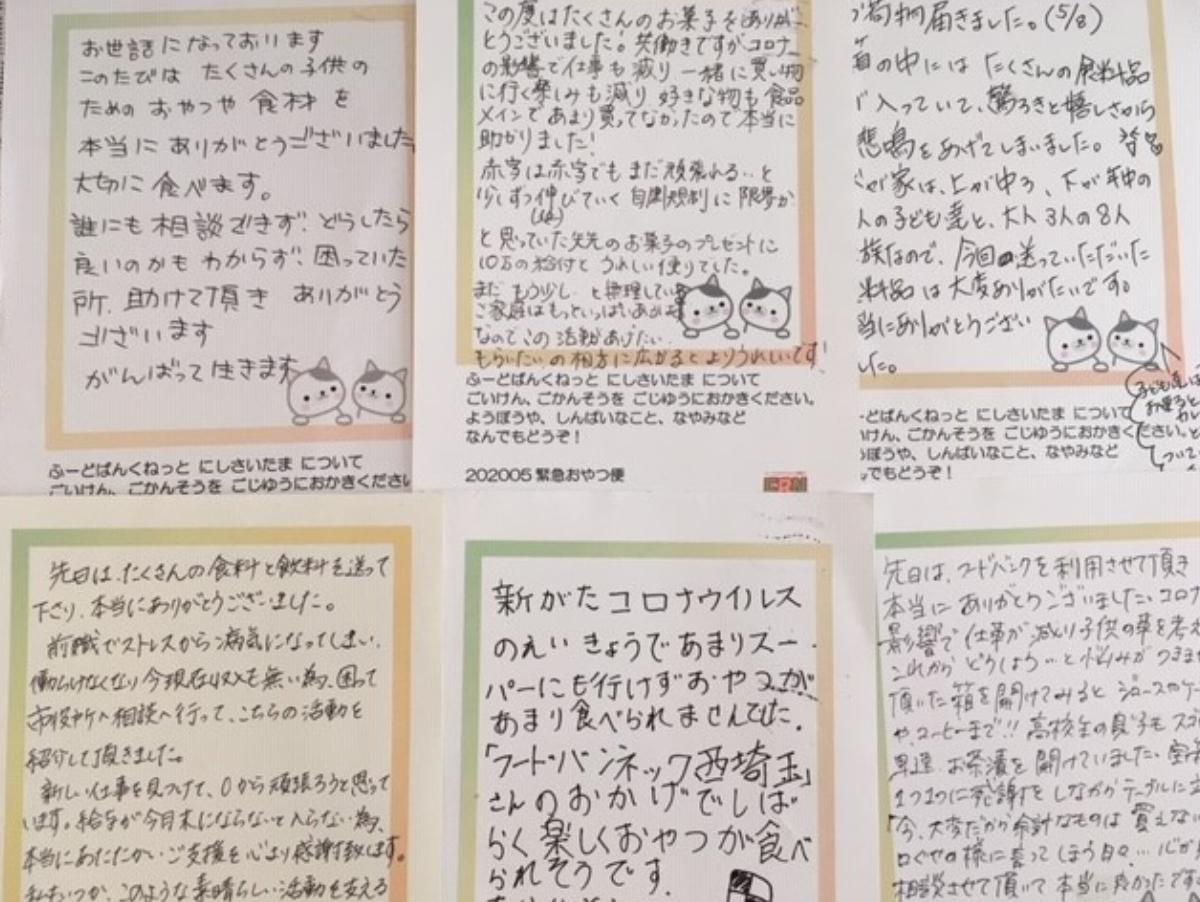 お世話になっております
このたびは たくさんの子供の
ための おやつや 食材 を
本当に ありがとうございました
大切に 食べます。
誰にも 相談できず、どうしたら
良いのかも わからず、困っていた
所、助けて頂き ありがとう
ございます
がんばって 生きます
ふーどばんくねっと にしさいたま について
ごいけん、ごかんそうを ごじゆうにおかきください
この度はたくさんのお菓子をありが
とうございました!共働きですがコロナ
の影響で仕事も減り 一緒に買い物
に行く楽しみも減り 好きな物も食品
メインであまり買ってなかったので本当に
助かりました!
赤字は赤字でも まだ頑張れる…と
少しずつ伸びていく 自粛規制に 限界か
と思っていた矢先のお菓子のプレゼントに
10万の給付と うれしい便りでした。
まだ もう少し…と無理している
ご家庭はもっといっぱいあるは
なのでこの活動あげたい
もらいたい の 両方に広がるとよりうれしいです!
ふーどばんくねっと にしさいたま について
ごいけん、ごかんそうを ごじゆうにおかきください。
ようぼうや、しんぱいなこと、なやみなど
なんでもどうぞ!
202005 緊急おやつ便
荷物届きました。(5/8)
の中には たくさんの食料品
入っていて、驚ろきと嬉しさから
悲鳴をあげてしまいました。
が家は、上が中3、下が年中の
人の子ども達と、大人3人の8人
族なので、今回送っていただいた
料品は大変ありがたいです。
当にありがとうござい
した。
ーどばんくねっと にしさいたま について
いけん、ごかんそうを ごじゆうにおかきください。
ぼうや、しんぱいなこと、なやみなど
でもどうぞ!
先日は、たくさんの食料と飲料を送って
下さり、本当にありがとうございました。
前職でストレスから病気になってしまい、
働らけなくなり今現在収入も無い為、困って
市役所へ相談へ行って、こちらの活動を
紹介して頂きました。
新しい仕事を見つけて、0から頑張ろうと思って
います。給与が今月末にならないと入らない為、
本当にあたたかいご支援を心より感謝致します。
私もいつか、このような素晴らしい活動を支える
新がたコロナウイルス
のえいきょうであまりスー
パーにも行けずおやつが
あまり食べられませんでした。
「フードバンネック西埼玉」
さんのおかげでしば
らく楽しくおやつが食べ
られそうです。
先日は、フードバンクを利用させて頂き
本当に ありがとうございました。コロナ
影響で 仕事が 減り子供の事を考え
これから どうしよう…と悩みが つきませ
頂いた箱を開けてみると ジュースや
や、コーヒーまで!! 高校生の息子も スゴ
早速 お茶漬を 開けていました。
1つ1つに感謝を しながら テーブルに
「今、大変だから余計なものは 買えない
口ぐせの様に言ってしまう日々… 心が
相談させて頂いて 本当に良かったです